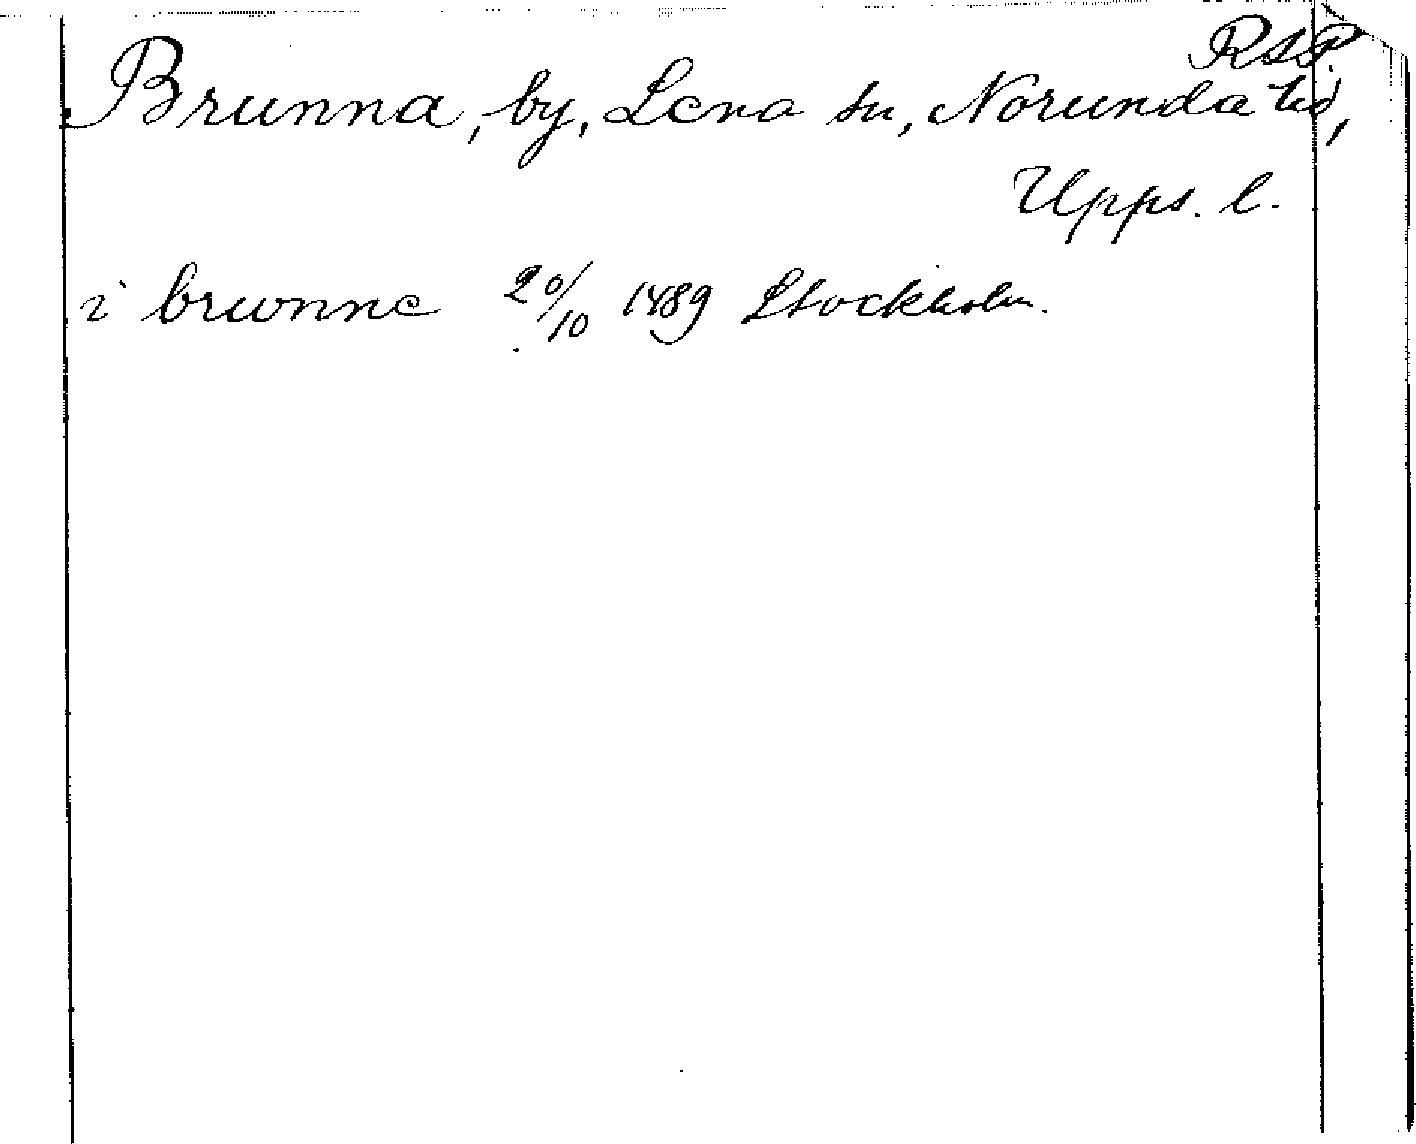 RAP.
Brunna, by, Lena sn, Norunda hd,
Upps. l.
i brwnne 20/10 1489 Stockholm.